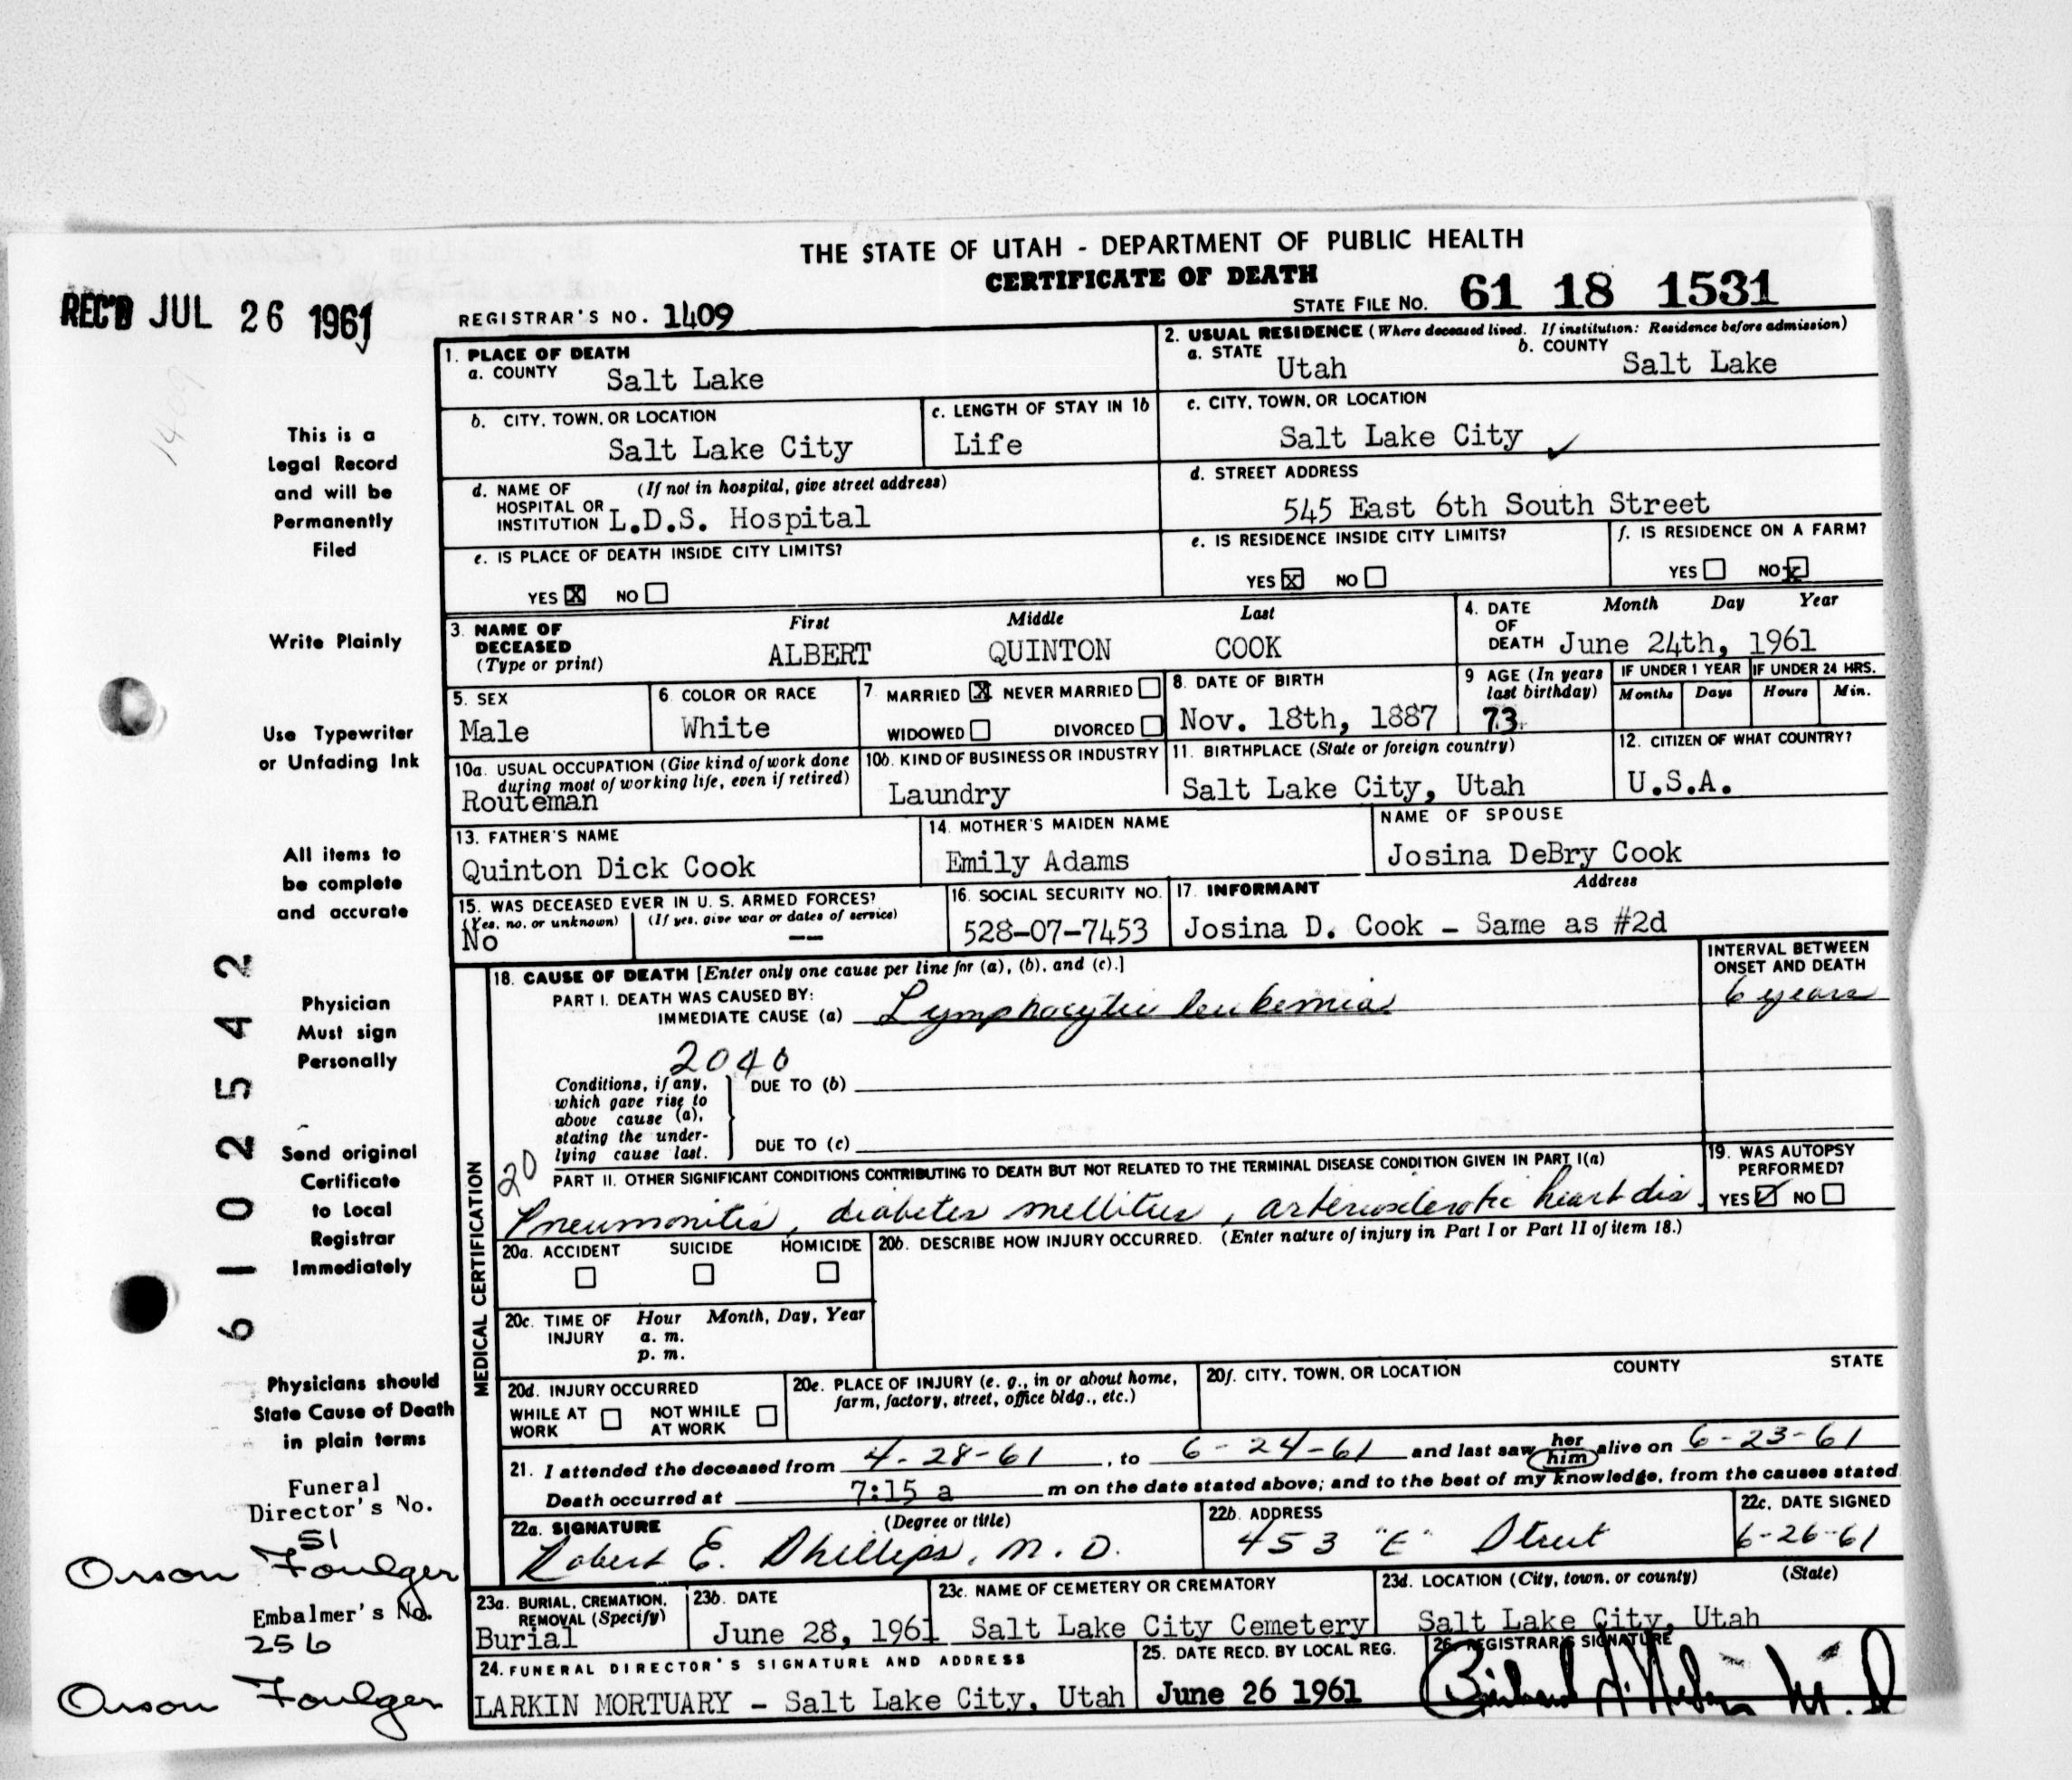 THE STATE OF UTAH - DEPARTMENT OF PUBLIC HEALTH
CERTIFICATE OF DEATH
REC'D JUL 26 1961
REGISTRAR'S NO. 1409
STATE FILE No. 61 18 1531
1409
1. PLACE OF DEATH
a. COUNTY Salt Lake
2. USUAL RESIDENCE (Where deceased lived. If institution: Residence before admission)
a. STATE Utah b. COUNTY Salt Lake
b. CITY, TOWN, OR LOCATION Salt Lake City
c. LENGTH OF STAY IN 1b Life
c. CITY, TOWN, OR LOCATION Salt Lake City ✓
d. NAME OF HOSPITAL OR INSTITUTION (If not in hospital, give street address) L.D.S. Hospital
d. STREET ADDRESS 545 East 6th South Street
e. IS PLACE OF DEATH INSIDE CITY LIMITS?
YES X NO
e. IS RESIDENCE INSIDE CITY LIMITS?
YES X NO
f. IS RESIDENCE ON A FARM?
YES NO X
3. NAME OF DECEASED (Type or print)
First Middle Last
ALBERT QUINTON COOK
4. DATE OF DEATH Month Day Year
June 24th, 1961
5. SEX Male
6. COLOR OR RACE White
7. MARRIED X NEVER MARRIED
WIDOWED DIVORCED
8. DATE OF BIRTH Nov. 18th, 1887
9 AGE (In years last birthday) 73
IF UNDER 1 YEAR Months Days
IF UNDER 24 HRS. Hours Min.
10a. USUAL OCCUPATION (Give kind of work done during most of working life, even if retired)
Routeman
10b. KIND OF BUSINESS OR INDUSTRY Laundry
11. BIRTHPLACE (State or foreign country) Salt Lake City, Utah
12. CITIZEN OF WHAT COUNTRY? U.S.A.
13. FATHER'S NAME Quinton Dick Cook
14. MOTHER'S MAIDEN NAME Emily Adams
NAME OF SPOUSE Josina DeBry Cook
15. WAS DECEASED EVER IN U. S. ARMED FORCES?
(Yes, no, or unknown) (If yes, give war or dates of service)
No --
16. SOCIAL SECURITY NO. 528-07-7453
17. INFORMANT Address
Josina D. Cook - Same as #2d
MEDICAL CERTIFICATION
18. CAUSE OF DEATH [Enter only one cause per line for (a), (b), and (c).]
INTERVAL BETWEEN ONSET AND DEATH
PART I. DEATH WAS CAUSED BY:
IMMEDIATE CAUSE (a) Lymphocytic leukemia 6 years
2040
Conditions, if any, which gave rise to above cause (a), stating the underlying cause last.
DUE TO (b)
DUE TO (c)
20
PART II. OTHER SIGNIFICANT CONDITIONS CONTRIBUTING TO DEATH BUT NOT RELATED TO THE TERMINAL DISEASE CONDITION GIVEN IN PART I(a)
Pneumonitis, diabetes mellitus, arteriosclerotic heart dis.
19. WAS AUTOPSY PERFORMED?
YES ✓ NO
20a. ACCIDENT SUICIDE HOMICIDE
20b. DESCRIBE HOW INJURY OCCURRED. (Enter nature of injury in Part I or Part II of item 18.)
20c. TIME OF INJURY Hour Month, Day, Year
a. m.
p. m.
20d. INJURY OCCURRED
WHILE AT WORK NOT WHILE AT WORK
20e. PLACE OF INJURY (e. g., in or about home, farm, factory, street, office bldg., etc.)
20f. CITY, TOWN, OR LOCATION COUNTY STATE
21. I attended the deceased from 4-28-61, to 6-24-61 and last saw her him alive on 6-23-61
Death occurred at 7:15 a m on the date stated above; and to the best of my knowledge, from the causes stated
22a. SIGNATURE (Degree or title)
Robert E. Phillips, M. D.
22b. ADDRESS 453 "E" Street
22c. DATE SIGNED 6-26-61
23a. BURIAL, CREMATION, REMOVAL (Specify) Burial
23b. DATE June 28, 1961
23c. NAME OF CEMETERY OR CREMATORY Salt Lake City Cemetery
23d. LOCATION (City, town, or county) (State)
Salt Lake City, Utah
24. FUNERAL DIRECTOR'S SIGNATURE AND ADDRESS
LARKIN MORTUARY - Salt Lake City, Utah
25. DATE RECD. BY LOCAL REG. June 26 1961
26. REGISTRAR'S SIGNATURE
This is a
Legal Record
and will be
Permanently
Filed
Write Plainly
Use Typewriter
or Unfading Ink
All items to
be complete
and accurate
Physician
Must sign
Personally
Send original
Certificate
to Local
Registrar
Immediately
Physicians should
State Cause of Death
in plain terms
61025542
Funeral
Director's No.
51
Orson Foulger
Embalmer's No.
256
Orson Foulger